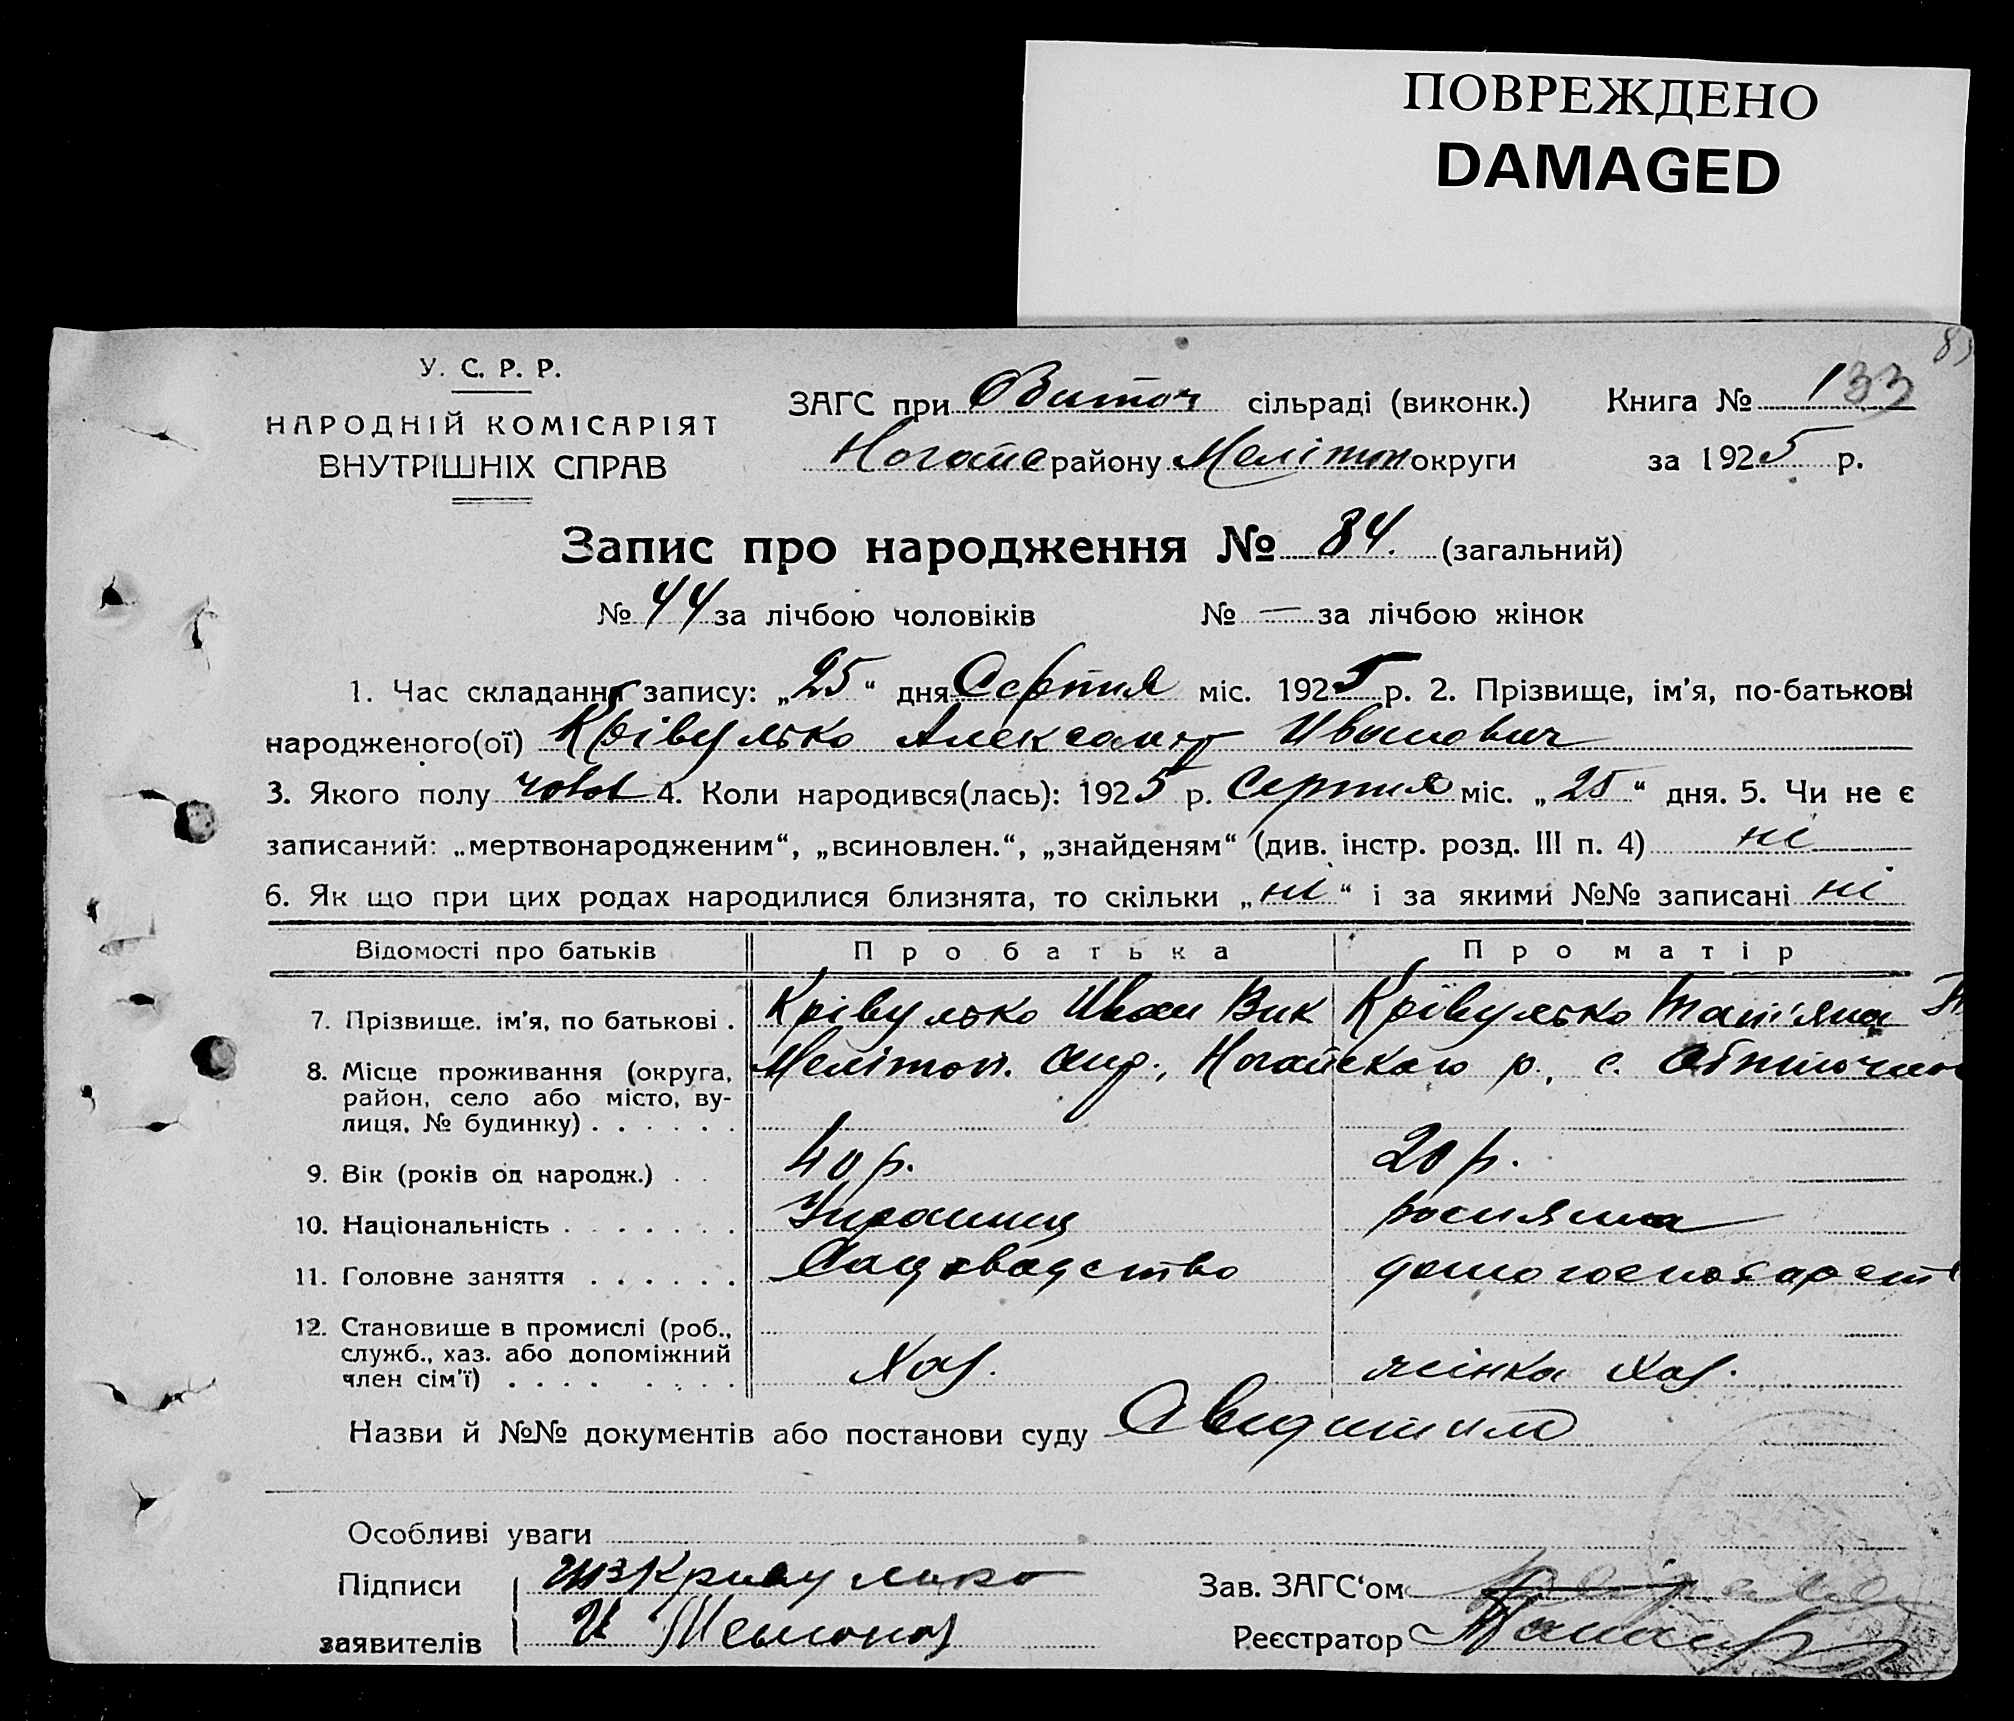 ПОВРЕЖДЕНО
DAMAGED
У. С. Р. Р.
НАРОДНІЙ КОМІСАРІЯТ
ВНУТРІШНІХ СПРАВ
ЗАГС при сільраді (виконк.)
Ногайс району Мелітоп округи
Книга № 133
за 1925 р.
Запис про народження № 84. (загальний)
№ 44 за лічбою чоловіків № — за лічбою жінок
1. Час складання запису: „25“ дня Серпня міс. 1925 р. 2. Прізвище, ім'я, по-батькові
народженого(ої) Крівулько Александр Иванович
3. Якого полу чолов 4. Коли народився(лась): 1925 р. Серпня міс. „25“ дня. 5. Чи не є
записаний: „мертвонародженим“, „всиновлен.“, „знайденям“ (див. інстр. розд. III п. 4) ні
6. Як що при цих родах народилися близнята, то скільки „ні“ і за якими №№ записані ні
Відомості про батьків Про батька Про матір
7. Прізвище. ім'я, по батькові . Крівулько Иван Вик Крівулько Татіяна
8. Місце проживання (округа, Мелітоп. окр., Ногайскаго р., с.
район, село або місто, ву-
лиця, № будинку) . . . . . .
9. Вік (років од народж.) . . 40 р. 20 р.
10. Національність . . . . . . . Украинец росиянка
11. Головне заняття . . . . . . Садовадство домогосподарст
12. Становище в промислі (роб.,
служб., хаз. або допоміжний
член сім'ї) . . . . . . . . Хаз. жінка Хаз.
Назви й №№ документів або постанови суду
Особливі уваги
Підписи Кривулько
заявителів И
Зав. ЗАГС'ом
Реєстратор